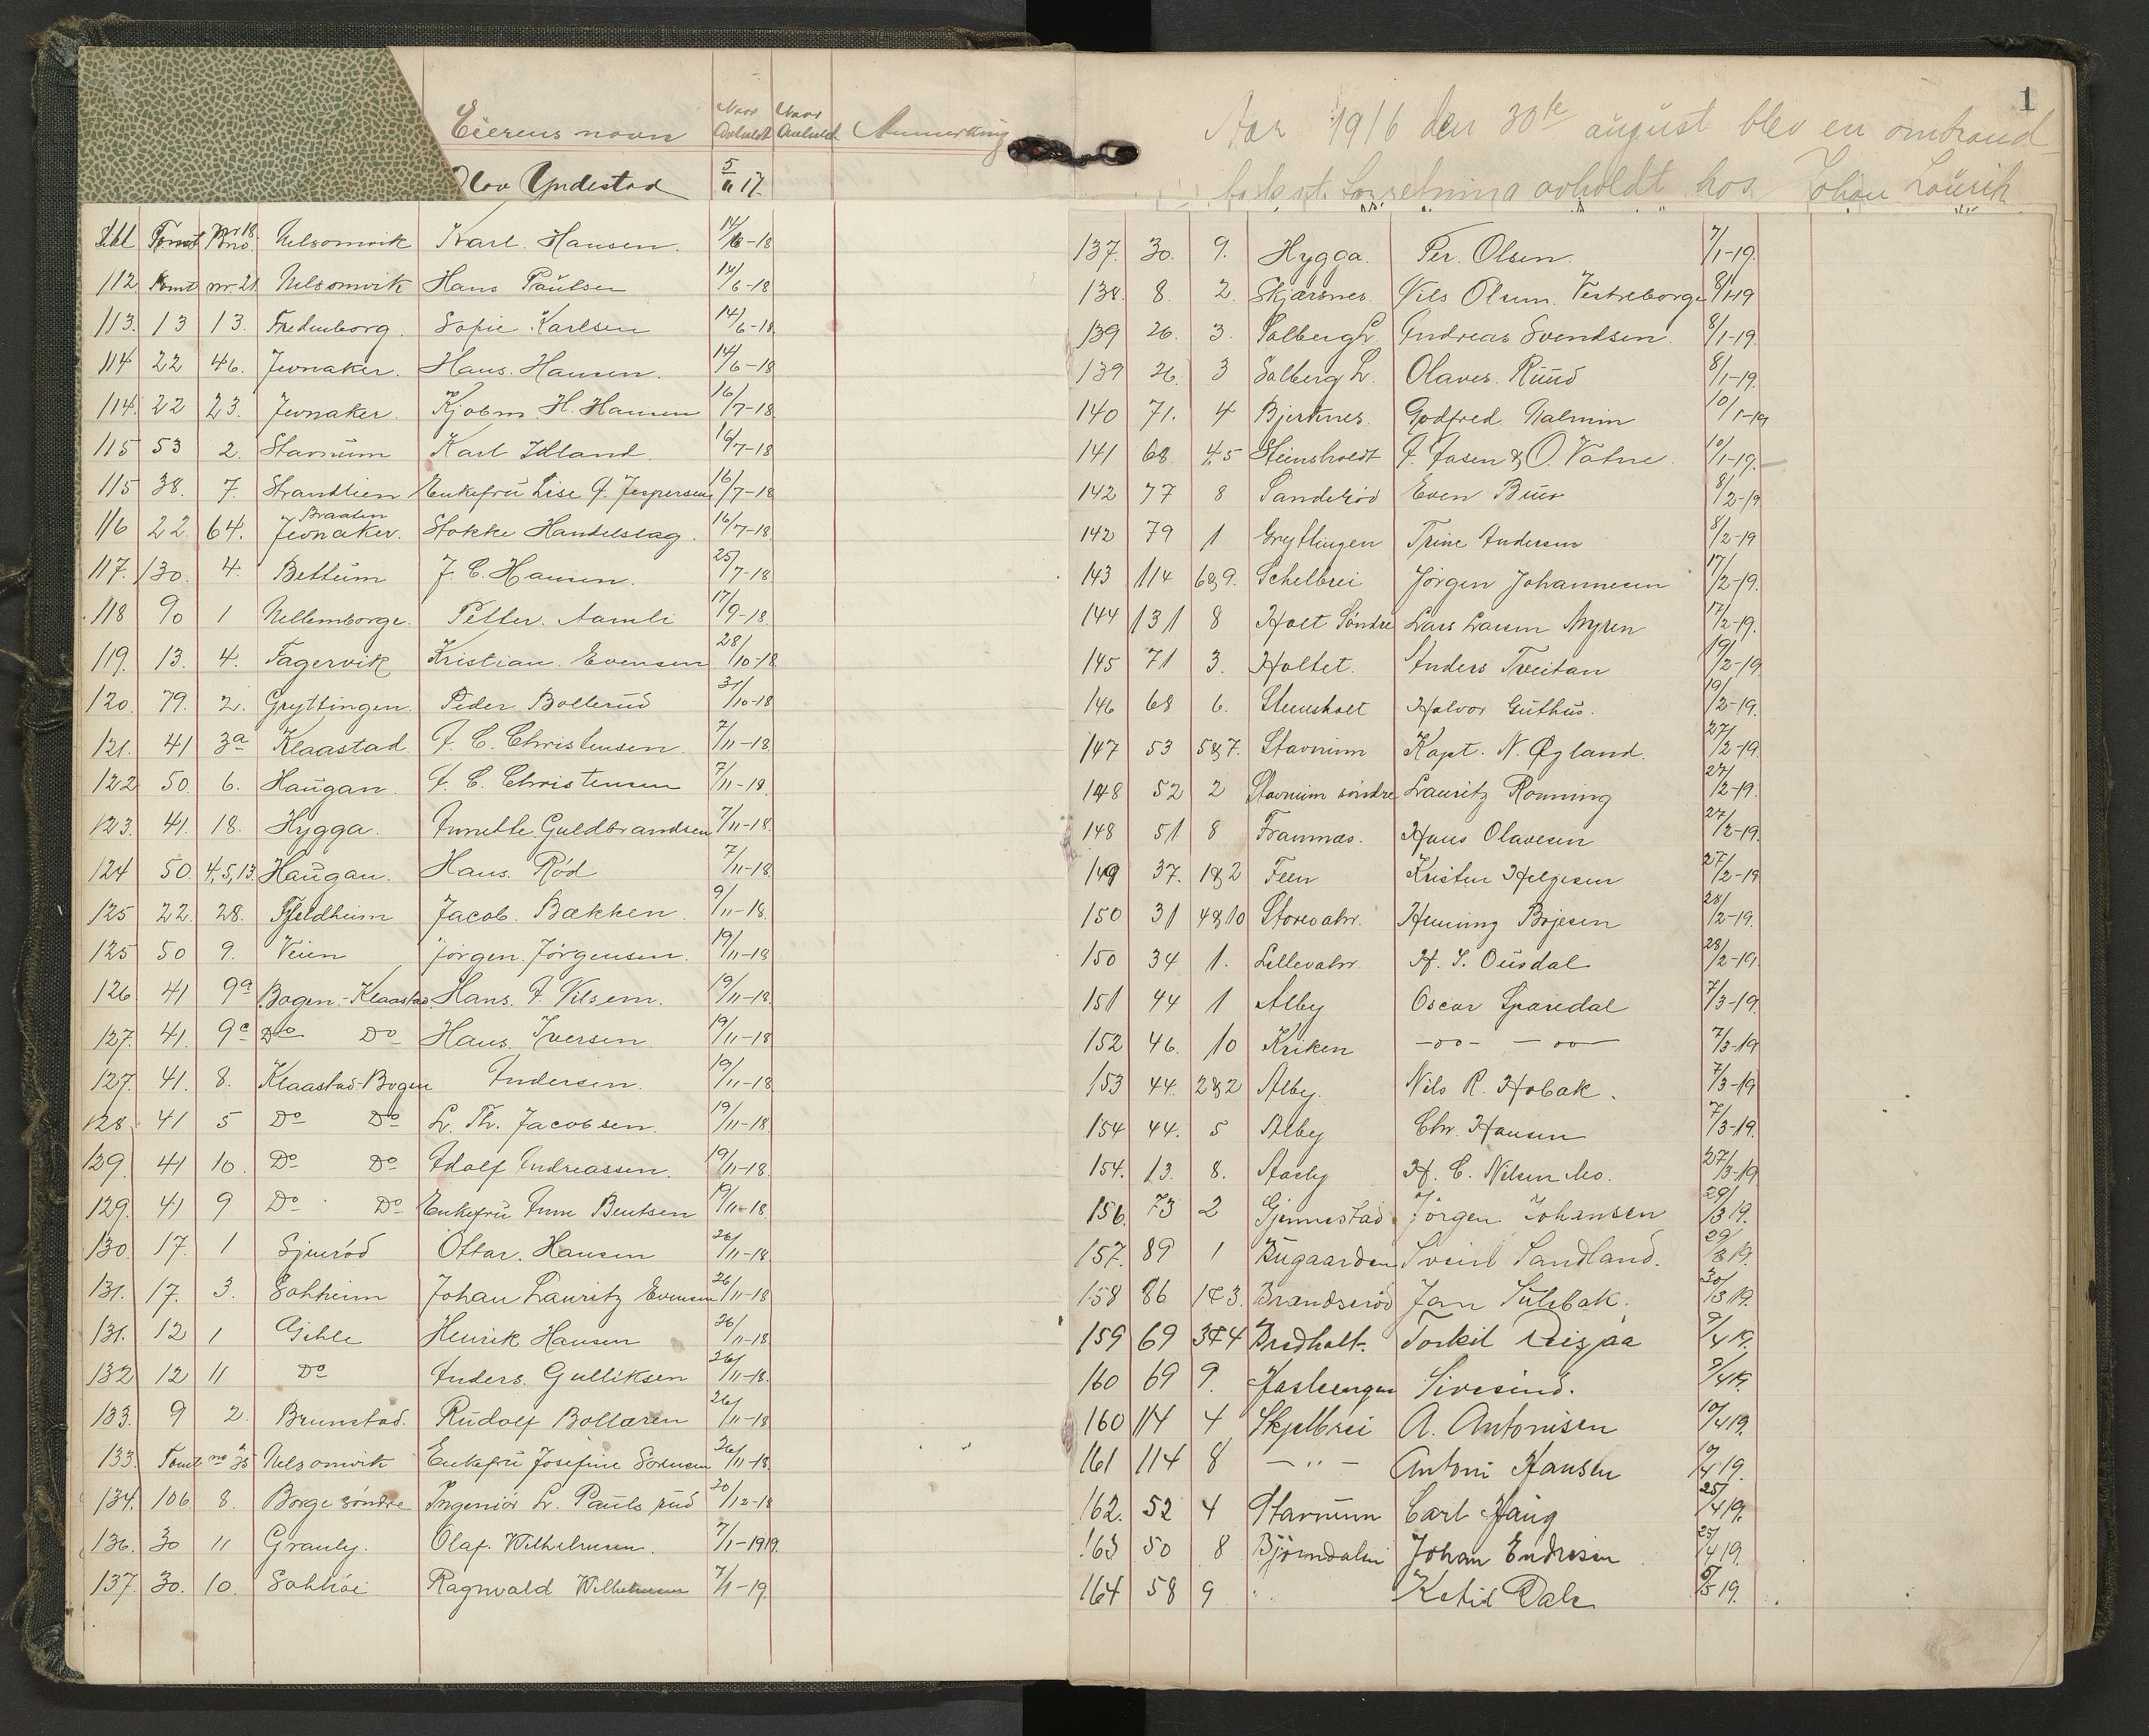 Eierens navn Naar Avholdt Naar Anmerkning
Olav Yndestad 5/11 17.
Tomt nr 18 Nelsomvik Karl. Hansen. 14/6-18
112 Tomt nr. 21 Nelsomvik Hans Paulsen 14/6-18
113. 13 13. Fredenborg. Sofie Karlsen 14/6-18.
114 22 46. Jevnaker. Hans. Hansen. 14/6-18
114. 22 23. Jevnaker. H. Hansen 16/7-18
115 53 2. Stavnum Karl 16/7-18
115 38. 7. Strandlien Enkefru Lise J. Jespersen 16/7-18
116 22 64. Braaten Jevnaker. Stokke Handelslag. 16/7-18.
117. 130. 4. Bettum J. C. Hansen. 25/7-18
118 90 1 Nellemborge. Petter. Aamli 17/9-18.
119. 13. 4. Fagervik Kristian Evensen 28/10-18
120. 79. 2. Gryttingen Peder Bollerud 31/10-18
121. 41 3a Klaastad J. C. Christensen. 7/11-18.
122 50. 6. Haugan. J. C. Christensen 7/11-18.
123. 41. 18. Hygga. Annette Guldbrandsen 7/11-18.
124 50. 4,5,13. Haugan. Hans. Rød 7/11-18.
125 22. 28. Fjeldheim Jacob. Bækken. 9/11-18.
125 50 9. Veien Jörgen. Jörgensen. 19/11-18
126 41 9a Bogen-Klaastad Hans. J. Nilsen. 19/11-18.
127. 41. 9c Do Do Hans. Iversen. 19/11-18
127. 41. 8. Klaastad-Bogen Andersen. 19/11-18
128. 41 5 Do Do L. Th. Jacobsen. 19/11-18.
129. 41 10. Do Do Adolf Andreassen. 19/11-18.
129. 41 9 Do Do Enkefru Anne Bentsen 19/11-18.
130. 17. 1 Sjueröd Ottar. Hansen 26/11-18.
131. 17. 3. Solheim Johan Lauritz Evensen 26/11-18
131. 12 1 Gihle Henrik Hansen 26/11-18
132 12 11 Do Anders. Gulliksen 26/11-18.
133. 9 2. Brunstad. Rudolf Bollæren 26/11-18
133. Tomt no 25 Nelsomvik Enkefru Josefine Sørensen 26/11-18.
134. 106 8. Borge söndre Ingeniör L. Paulsrud 20/12-18
136. 30 11 Granly. Olaf. Wilhelmsen. 7/1-1919.
137. 30. 10. Solhöi Ragnvald Wilhelmsen 7/1-19.
1
Aar 1916 den 30te august blev en ombrud
forretning avholdt hos Johan
137. 30. 9. Hygga. Per. Olsen. 7/1-19.
138. 8. 2. Skjærsnes. Nils Olsen. Vestreborge 8/1-19
139 26. 3. Solberg L. Andreas Svendsen. 8/1-19.
139 26. 3 Solberg L. Olaves. Ruud 8/1-19.
140 71. 4 Bjerknes. Godfred Malmin 10/1-19
141 68. 4,5 Steinsholdt J. Aasen & O. Vatne. 10/1-19.
142 77 8 Sanderöd Even Buer 8/2-19
142 79 1 Gryttingen Trine Andersen 8/2-19
143 114 6&9. Schelbrei Jörgen Johannesen 17/2-19.
144 131 8 Holt Söndre Lars Larsen Myren 17/2-19.
145 71 3. Holtet. Anders Tveitan 19/2-19.
146 68 6. Stensholt Halvor Guthus. 19/2-19.
147 53 5&7. Stavnum Kapt. N. Øgland. 27/2-19.
148 52 2 Stavnum söndre Lauritz Rønning 27/2-19.
148 51 8 Framnæs. Hans Olavesen 27/2-19.
149 37. 1&2 Feen Kristen Helgesen 27/2-19
150 31 4&10 Storevahr. Henning Bojesen 28/2-19.
150 34 1. Lillevahr. H. S. Ousdal 28/2-19.
151 44 1 Alby Oscar Sparedal 7/3-19.
152 46. 10 Kriken -oo- -oo- 7/3-19
153 44. 2&2 Alby. Nils R. Hobæk. 7/3-19
154 44. 5 Alby Chr. Hansen 7/3-19.
154. 13. 8. Aasly H. C. Nilsen Mo. 27/3-19
156. 73 2 Gjennestad Jörgen Johansen 29/3 19.
157. 89 1 Bugaarden Svein Sandland. 29/3 19.
158 86 1&3. Brandseröd Jan Sulebak. 30/3 19.
159 69 3&4 Bredholt. Torkil Reisjaa 9/4 19.
160 69 9. Aasleengen Siresund. 9/4 19.
160 114 4 Skjelbrei A. Antonisen 10/4 19.
161 114 8 - " - Antoni Hansen 10/4 19.
162. 52 4 Stavnum Carl Haug 25/4 19.
163 50 8 Björndalen Johan Endresen 25/4 19.
164 58 9 Ketil Dale 5/5 19.